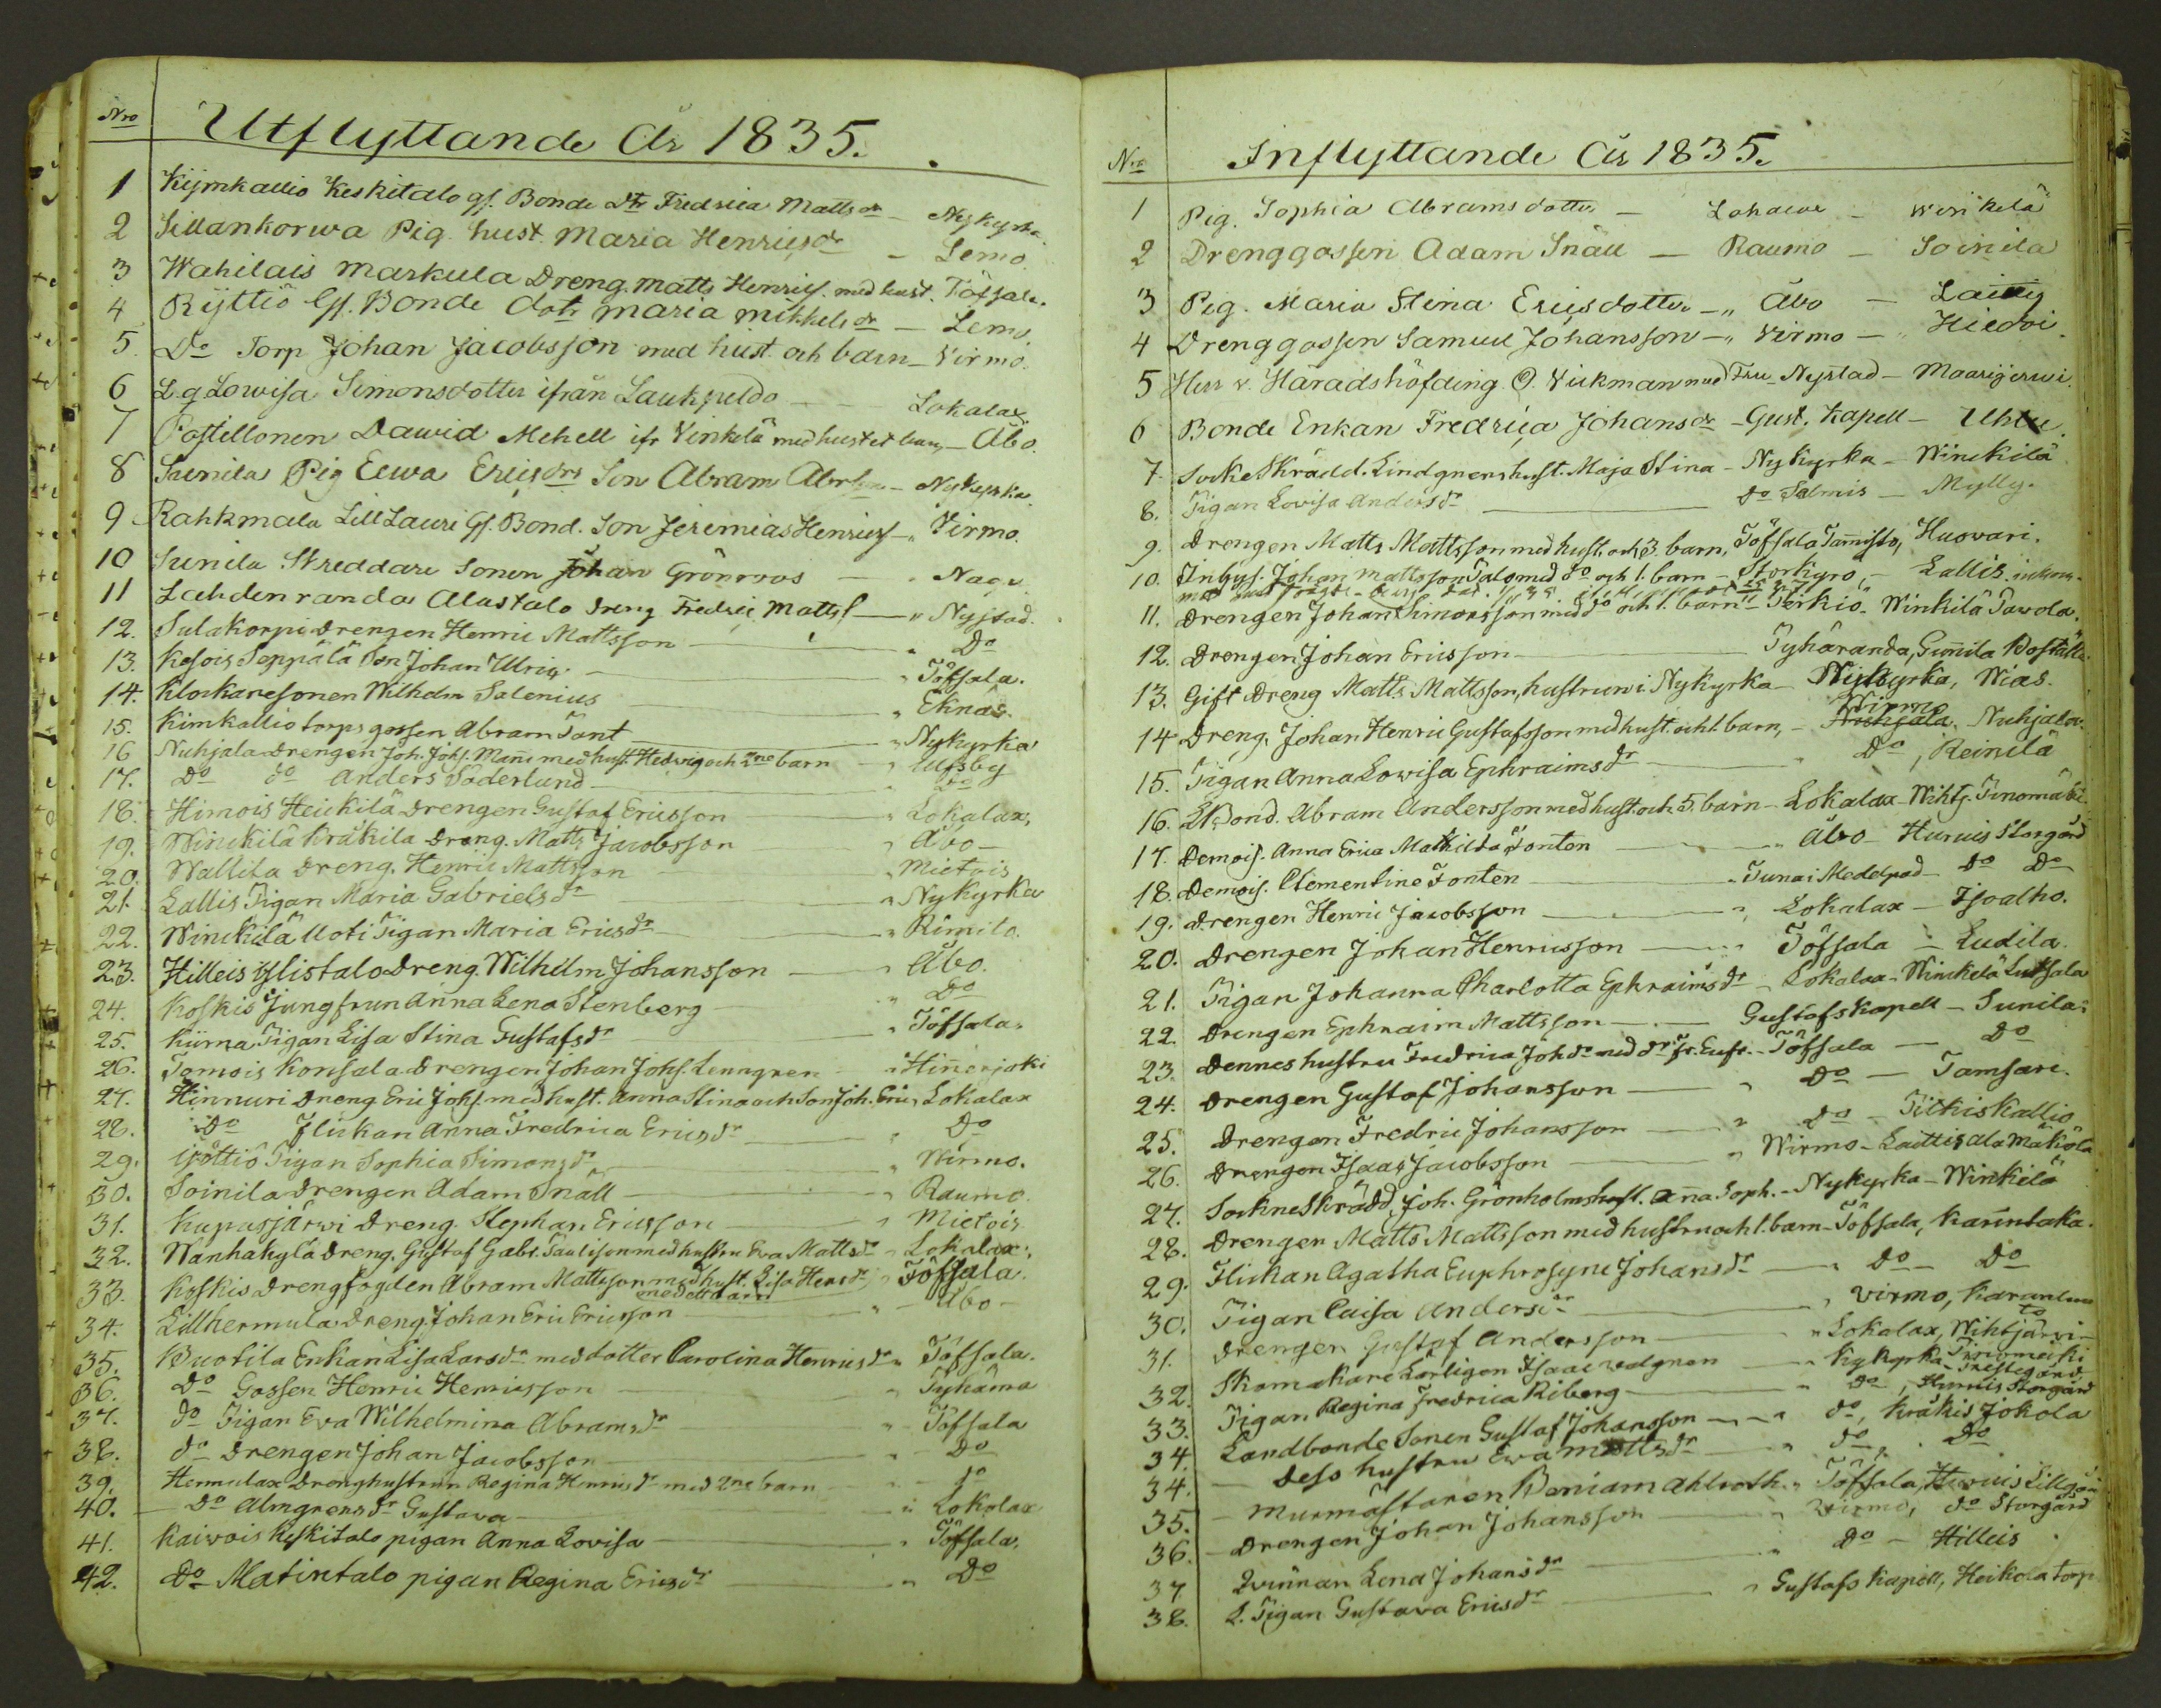 Nro Utflyttande År 1835.
1 Kijmkallio Keskitalo gf. Bonde Dtr Fredrica Mattsdr – Nykyrka.
2 Sillankorwa Pig. hust. Maria Henricsdr – Lemo.
3 Wahilais Markula Dreng. Matts Henrics. med hust. Töfsala.
4 Ryttiö Gf. Bonde dotr Maria Mikkelsdr – Lemo.
5 Do Torp Johan Jacobsson med hust. och barn – Virmo.
6 L.g. Lowisa Simonsdotter ifrån Laukpeldo – Lokalax
7 Postillonen Dawid Mehell ifr Vinkelä med hust et barn – Åbo.
8 Sunila Pig Eewa Ericsdrs Son Abram – Nykyrka.
9 Rahkmala Lill Lauri Gf. Bond. Son Jeremias Henricss – „ Virmo.
10 Sunila Skreddare Sonen Johan Grönroos – „ Nagu
11 Lahdenranda Alastalo dreng Fredric Matts. – „ Nystad.
12. Sulakorpi drengen Henric Mattsson – „ Do
13. Kesois Seppälä Son Johan Ulric – „ Töfsala.
14. Klockaresonen Wilhelm Salenius „ Eknäs.
15. Kimkallio torps gossen Abram Tant „ Nykyrka
16 Nuhjala drengen Joh. Johs. Mañi med hust. Hedvig och 2ne barn „ Ulfsby
17. Do do Anders Söderlund – „ Do
18. Himois Heickilä drengen Gustaf Ericsson – „ Lokalax,
19. Winckilä Kräkilä dreng. Matts Jacobsson – „ Åbo –
20. Wallila dreng. Henric Mattsson „ Mietois
21. Lallis Pigan Maria Gabrielsdr „ Nykyrka
22. Winckilä Uoti Pigan Maria Ericsdr „ Rimito.
23. Hilleis Yllistalo Dreng. Wilhelm Johansson – „ Åbo.
24. Koskis Jungfrun Anna Lena Stenberg „ Do
25. Kiirna Pigan Lisa Stina Gustafsdr „ Töfsala.
26. Tomois Konsala drengen Johan Johs. Lenngren „ Hinerjoki
27. Hinnuri dreng Eric Johs. med hust. Anna Stina och Son Joh. Eric, Lokalax
28. Do Flickan Anna Fredrica Ericsdr – „ Do
29. Yöttiö Pigan Sophia Simonsdr „ Wirmo.
30. Soinila drengen Adam Snäll – „ Raumo.
31. Kupusjärwi Dreng. Stephan Ericsson – „ Mietois
32. Wanhakylä dreng. Gustaf Gabr. Paulison med hustru Eva Mattsdr „ Lokalax.
33. Koskis Drengfogden Abram Mattsson med hust. Lisa Hensdr „ Töfsala.
med ett barn
34. Lillhermula dreng Johan Eric Ericsson „ Åbo –
35. Buotila Enkan Lisa Larsdr med dotter Carolina Henricsdr „ Töfsala.
36. Do Gossen Henric Henricsson „ Pyhäma
37. do Pigan Eva Wilhelmina Abramsdr „ Töfsala
38. do Drengen Johan Jacobsson – „ Do
39. Hermulax Drenghustrun Regina Henricsdr med 2ne barn „ do
40. – Do Almgrens dr Gustava – „ Lokalax
41. Kaiwois Keskitalo pigan Anna Lovisa – „ Töfsala.
42. Do Matintalo pigan Regina Ericsdr – „ Do
Nro Inflyttande År 1835.
1 Pig. Sophia Abramsdotter – Lokalax – Winkelä
2 Drenggossen Adam Snäll – Raumo – Soinila
3 Pig. Maria Stina Ericsdotter – „ Åbo –
4 Drenggossen Samuel Johansson – „ Virmo – Hiedoi.
5 Herr v. Häradshöfding O. Vickman med Fru – Nystad – Maarijerwi.
6 Bonde Enkan Fredrica Johansdr – Gust. Kapell –
7. Socke Skrädd. Lindgrens hust. Maja Stina – Nykyrka – Winckilä
8. Pigan Lovisa Andersdr – do Salmis – Mylly.
9. Drengen Matts Mattsson med hust. och 3. barn, Töfsala Tamisto, Huovari.
10. Inhys. Johan Mattsson Salo med do och 1. barn – Storkyro, – Lallis
11. Drengen Johan Simonsson med do och 1. barn – Terkiö – Winkilä Tawola.
12. Drengen Johan Ericsson – Pyhäranda, Suñila Boställe
13. Gift Dreng Matts Mattsson, hustrun i Nykyrka – Nykyrka, Wias.
14 Dreng. Johan Henric Gustafsson med hust. och 1. barn, – Wirmo Nuhjala. Nuhjala.
15. Pigan Anna Lowisa Ephraimsdr „ Do, Reinilä
16. LBond. Abram Andersson med hust. och 5. barn – Lokalax – Wihtj. Tinomäki.
17. Demois. Anna Erica Mathilda Fonten „ Åbo – Huruis Storgård
18. Demois. Clementine Fonten – „ Tuna i Medelpad – Do Do
19. Drengen Henric Jacobsson „ Lokalax – Isoalho.
20. Drengen Johan Henricsson – „ Töfsala – Ludila.
21. Pigan Johanna Charlotta Ephraimsdr – Lokalax – Winckelä Luksala
22. Drengen Ephraim Mattsson – Gustafs Kapell – Sunila
23. Dennes hustru Fredrica Johdr med dr Fr. Eufr. – Töfsala – Do
24. Drengen Gustaf Johansson – „ Do – Tamsare.
25. Drengen Fredric Johansson – „ Do – Pitkiskallio
26. Drengen Isaac Jacobsson „ Wirmo – Laittis ala mäkölä
27. Sockne Skrädd, Joh. Grönholms hust. Aña Soph. – Nykyrka – Winkilä
28. Drengen Matts Mattsson med hustru och 1. barn – Töfsala, Kariintaka.
29. Flickan Agatha Euphrosyne Johansdr – „ Do – Do
30. Pigan Caisa Andersdr – „ Virmo,
31. Drengen Gustaf Andersson – „ Lokalax, Wihtjärvi
32. Skomakare Lärligen Isaac Wedgren – „ Nykyrka Prestegård
33. Pigan Regina Fredrica Riberg – „ do, Huruis Storgård
34. Landbonde Sonen Gustaf Johansson – „ do, Kräkis Jokola
34. – Dess hustru Eva Mattsdr – „ do Do
35. – Murmästaren Beniam Ahlroth. „ Töfsala, Huruis Lillgård
36. – Drengen Johan Johansson „ Virmo, do Storgård
37 Qvinnan Lena Johansdr „ Do – Hilleis
38. L. Pigan Gustava Ericsdr „ Gustafs Kapell, Heikola torp